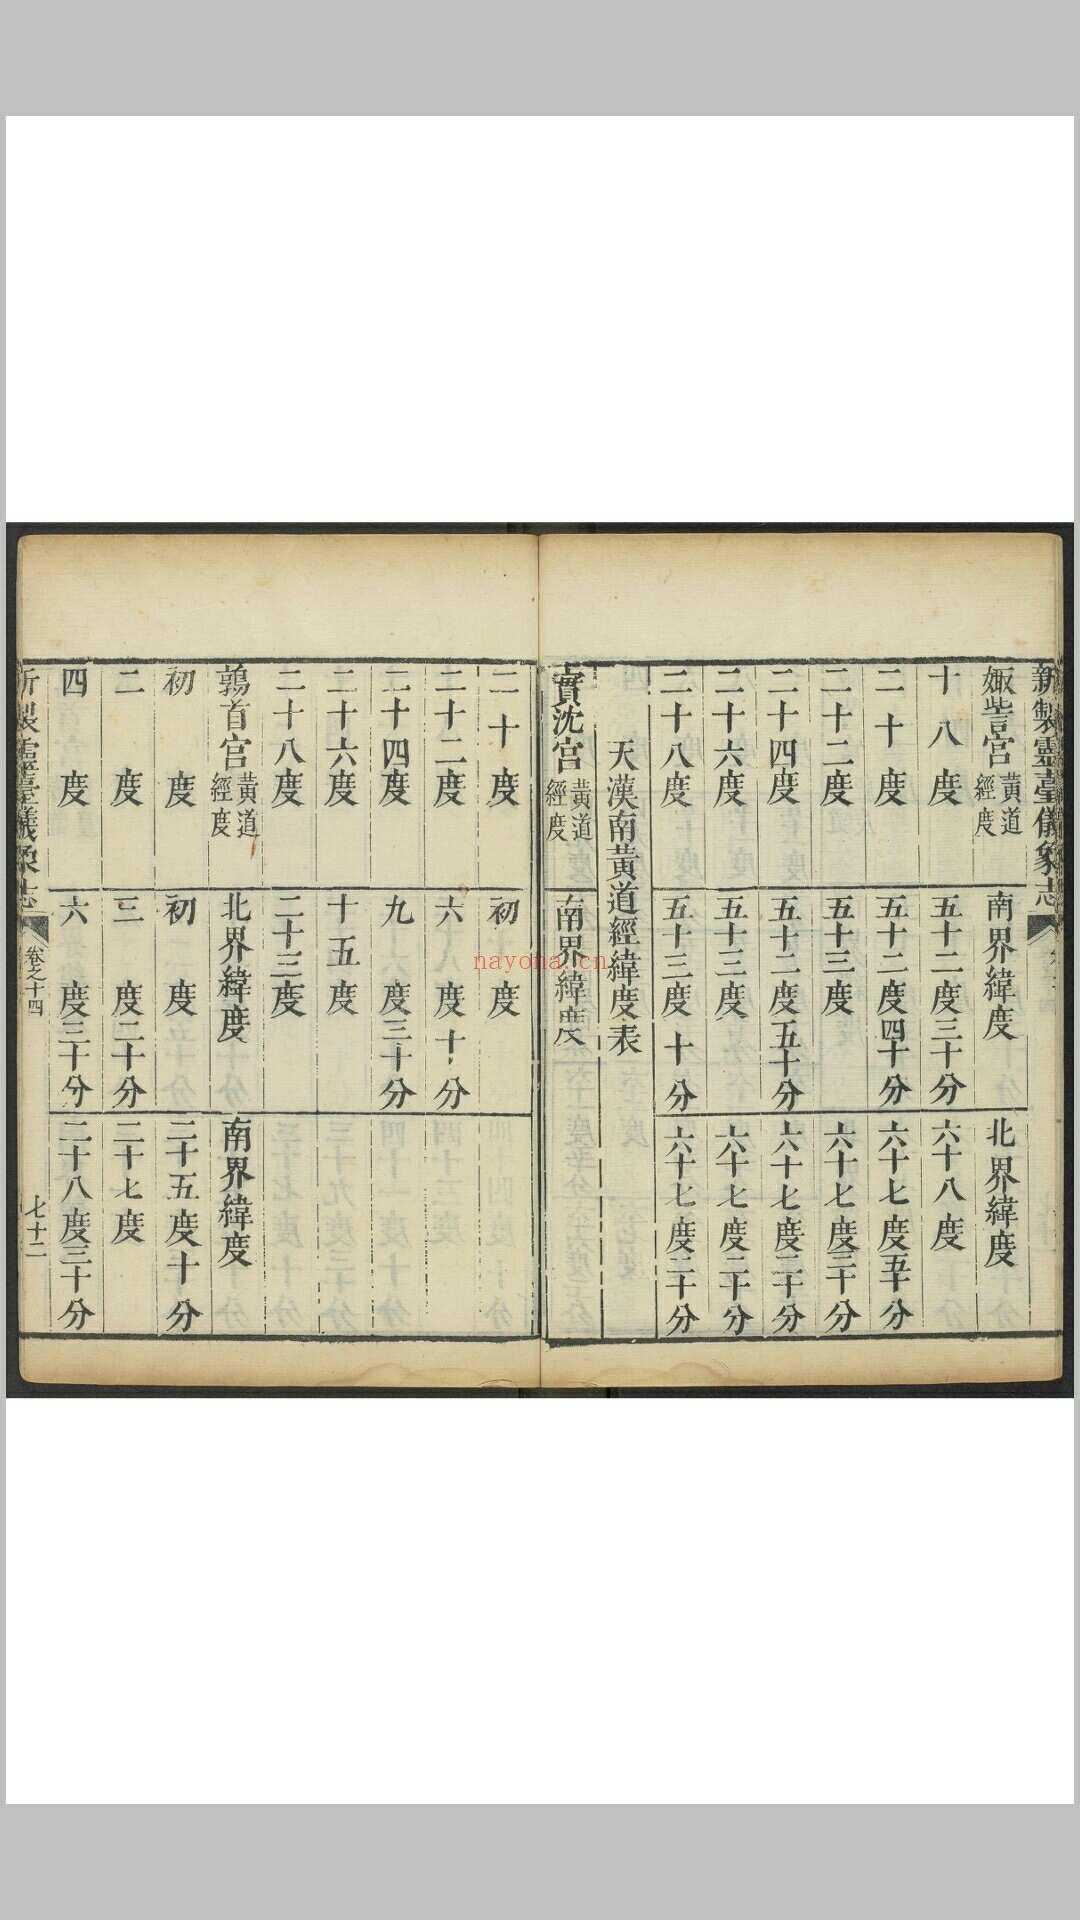 新製靈臺儀象志
娵訾宮 黃道經度 南界緯度 北界緯度
十八度 五十二度三十分 六十八度
二十度 五十二度四十分 六十七度五十分
二十二度 五十三度 六十七度三十分
二十四度 五十二度五十分 六十七度二十分
二十六度 五十三度 六十七度二十分
二十八度 五十三度十分 六十七度二十分
天漢南黃道經緯度表
實沈宮 黃道經度 南界緯度
二十度 初度
二十二度 六度十分
二十四度 九度三十分
二十六度 十五度
二十八度 二十三度
鶉首宮 黃道經度 北界緯度 南界緯度
初度 初度 二十五度十分
二度 三度二十分 二十七度
四度 六度三十分 二十八度三十分
新製靈臺儀象志 卷之十四 七十二
nayona.cn